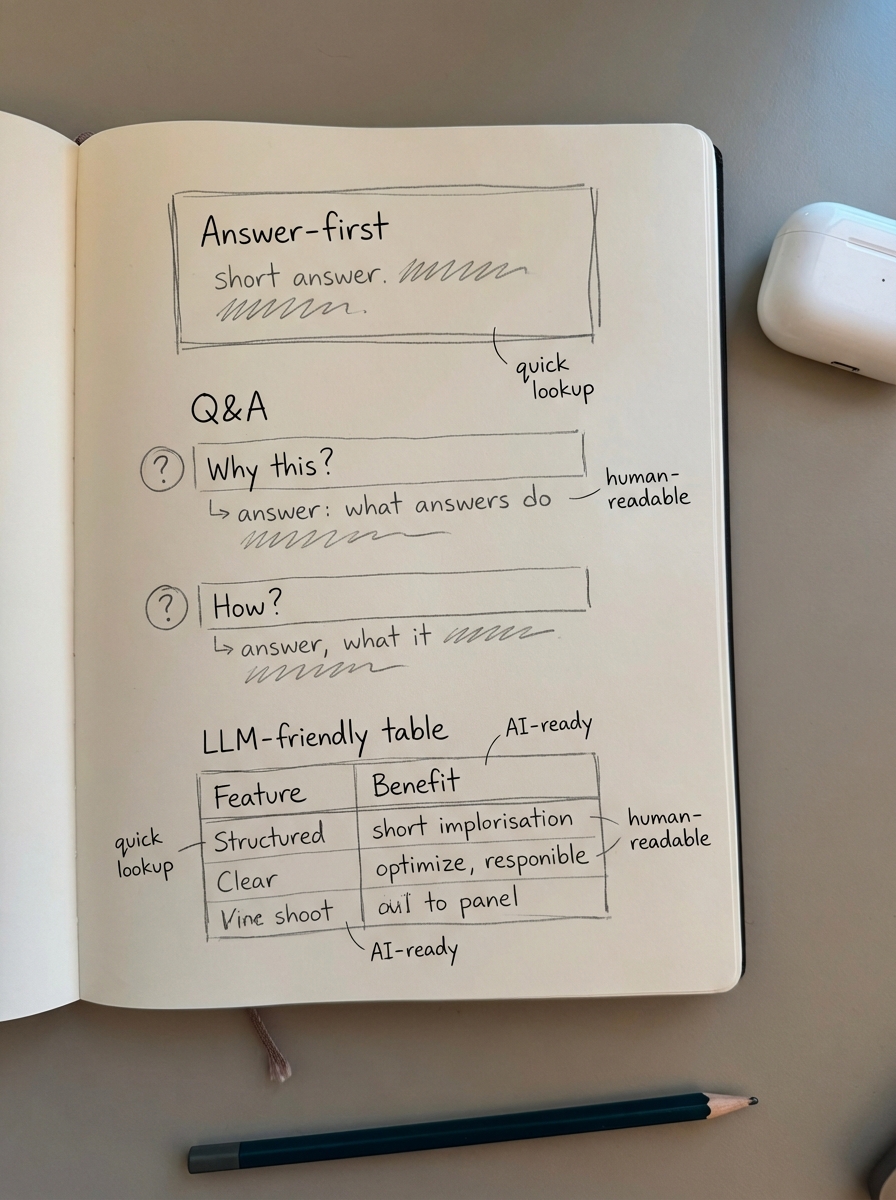 Answer-first
short answer.
quick
lookup
Q&A
? Why this?
answer: what answers do
human-
readable
? How?
answer, what it
LLM-friendly table
AI-ready
Feature Benefit
Structured short implorisation
quick
lookup
human-
readable
Clear optimize, responible
Vine shoot to panel
AI-ready